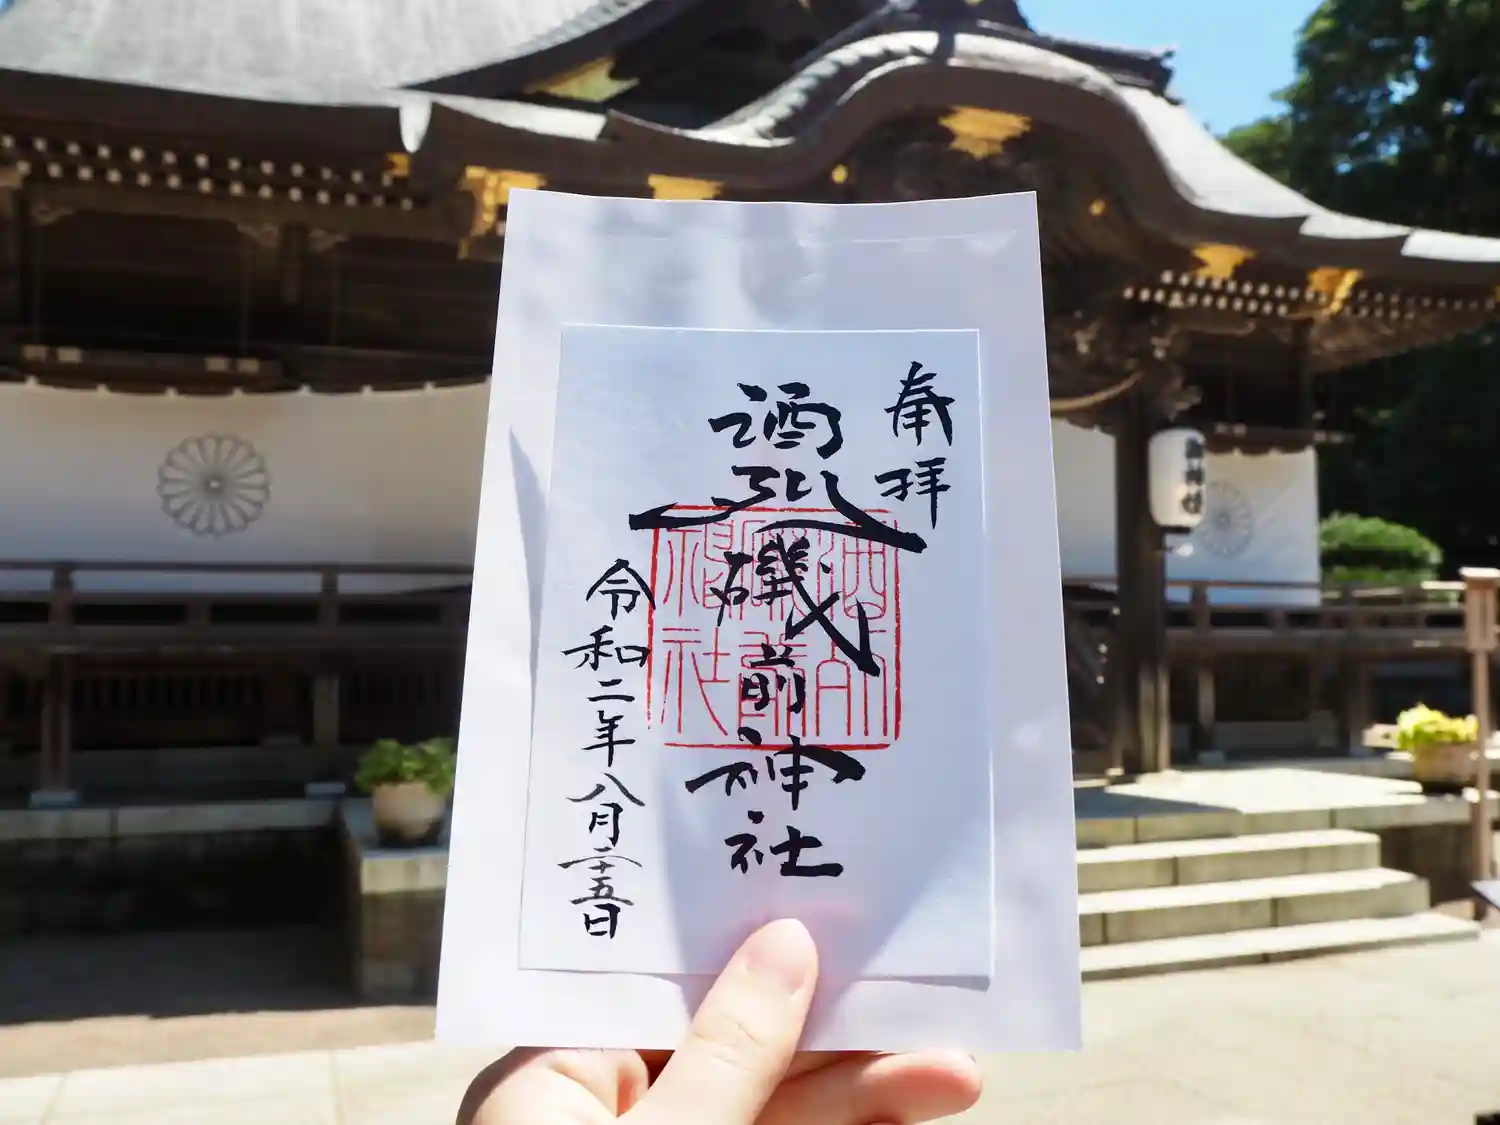 奉拝
酒列磯前神社
令和二年八月二十五日
酒列
磯前
神社